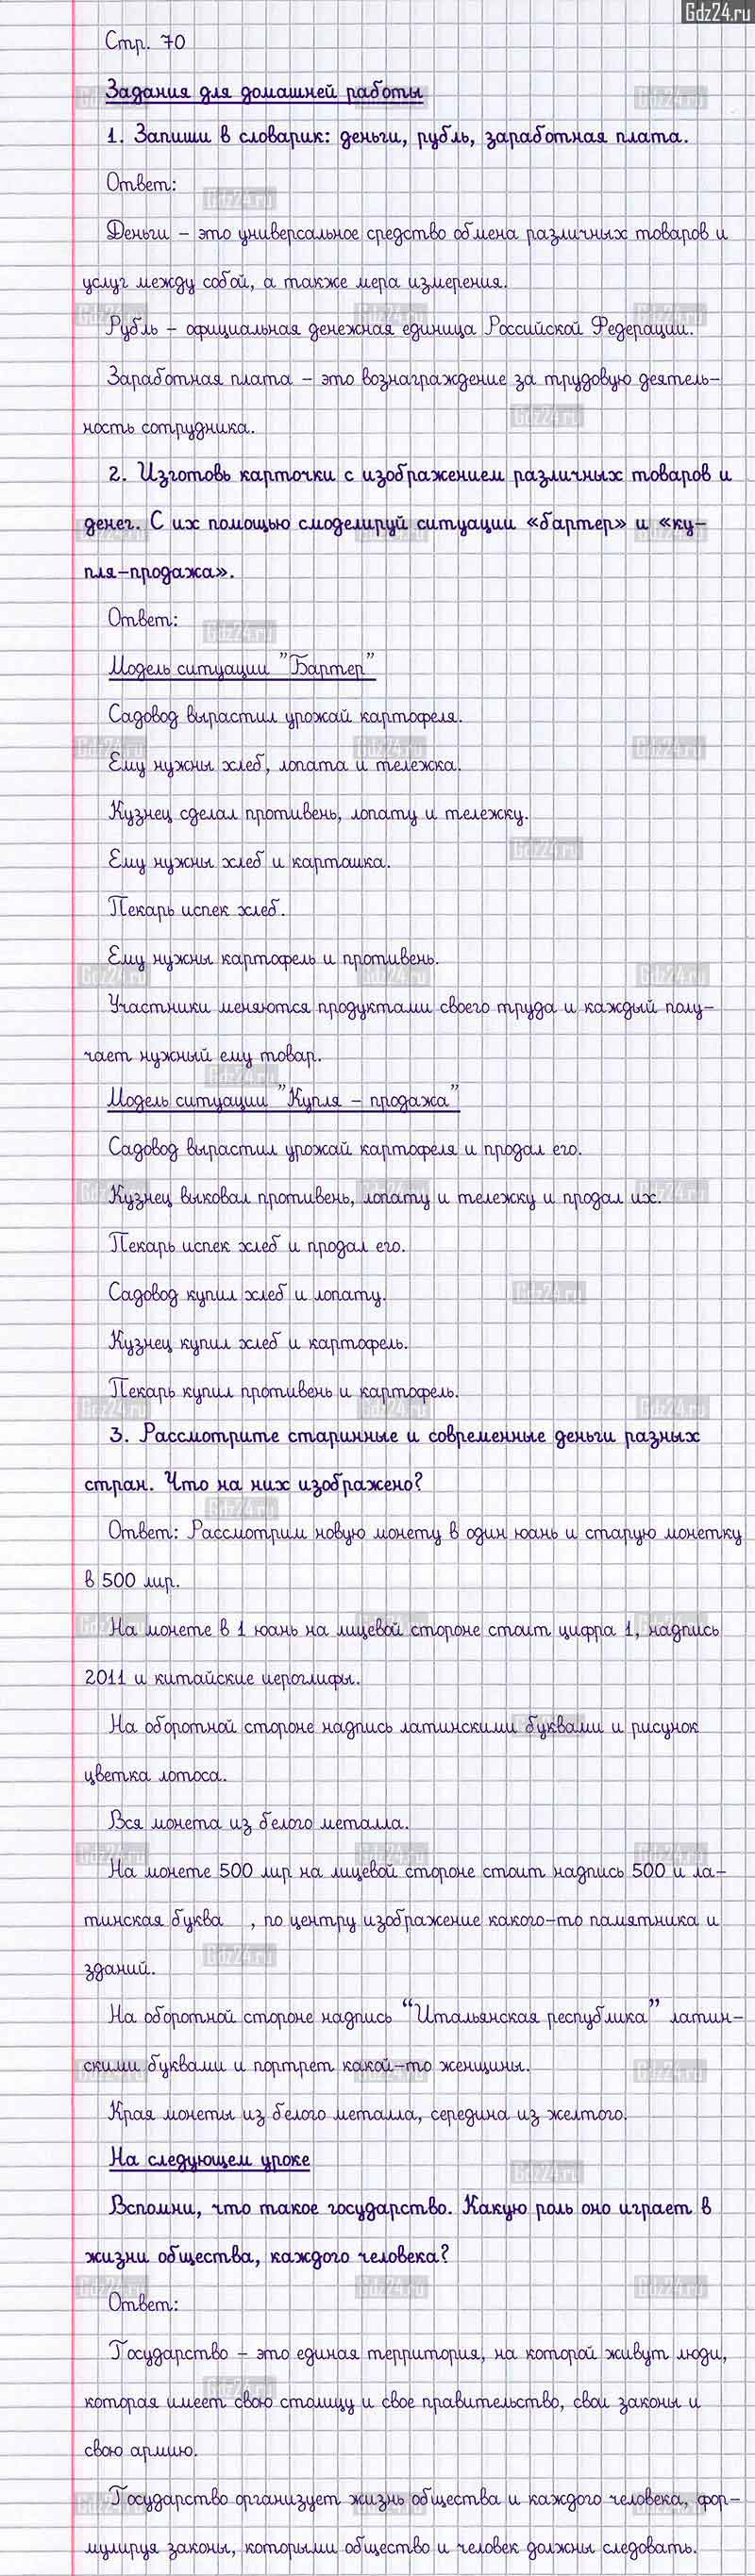 Gdz24.ru
Стр. 70
Задания для домашней работы
1. Запиши в словарик: деньги, рубль, заработная плата.
Ответ:
Деньги – это универсальное средство обмена различных товаров и
услуг между собой, а также мера измерения.
Рубль – официальная денежная единица Российской Федерации.
Заработная плата – это вознаграждение за трудовую деятель-
ность сотрудника.
2. Изготовь карточки с изображением различных товаров и
денег. С их помощью смоделируй ситуации «бартер» и «ку-
пля-продажа».
Ответ:
Модель ситуации "Бартер"
Садовод вырастил урожай картофеля.
Ему нужны хлеб, лопата и тележка.
Кузнец сделал противень, лопату и тележку.
Ему нужны хлеб и картошка.
Пекарь испек хлеб.
Ему нужны картофель и противень.
Участники меняются продуктами своего труда и каждый полу-
чает нужный ему товар.
Модель ситуации "Купля – продажа"
Садовод вырастил урожай картофеля и продал его.
Кузнец выковал противень, лопату и тележку и продал их.
Пекарь испек хлеб и продал его.
Садовод купил хлеб и лопату.
Кузнец купил хлеб и картофель.
Пекарь купил противень и картофель.
3. Рассмотрите старинные и современные деньги разных
стран. Что на них изображено?
Ответ: Рассмотрим новую монету в один юань и старую монетку
в 500 лир.
На монете в 1 юань на лицевой стороне стоит цифра 1, надпись
2011 и китайские иероглифы.
На оборотной стороне надпись латинскими буквами и рисунок
цветка лотоса.
Вся монета из белого металла.
На монете 500 лир на лицевой стороне стоит надпись 500 и ла-
тинская буква , по центру изображение какого-то памятника и
зданий.
На оборотной стороне надпись "Итальянская республика" латин-
скими буквами и портрет какой-то женщины.
Края монеты из белого металла, середина из желтого.
На следующем уроке
Вспомни, что такое государство. Какую роль оно играет в
жизни общества, каждого человека?
Ответ:
Государство – это единая территория, на которой живут люди,
которая имеет свою столицу и свое правительство, свои законы и
свою армию.
Государство организует жизнь общества и каждого человека, фор-
мулируя законы, которыми общество и человек должны следовать.